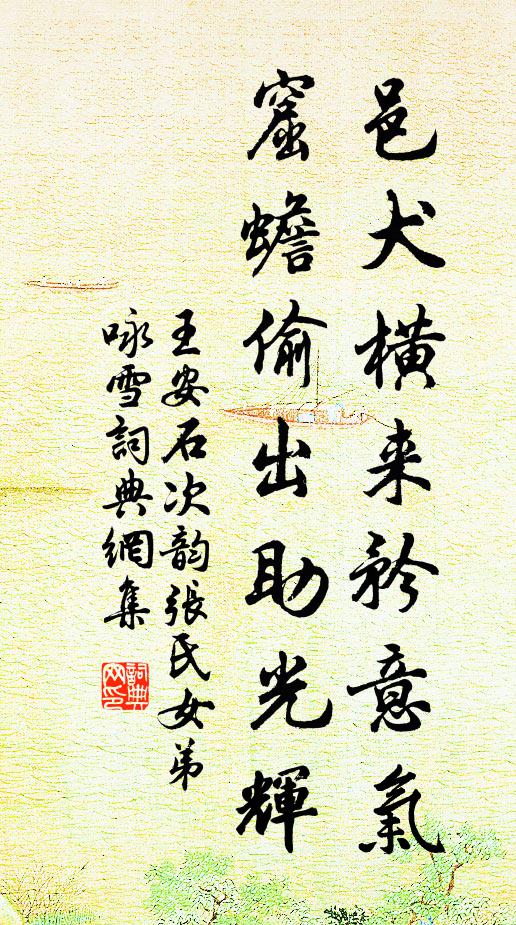 邑犬橫来矜意氣
窟蟾偷出助光輝
王安石次韵張氏女弟
咏雪詞典網集
詞典
网印